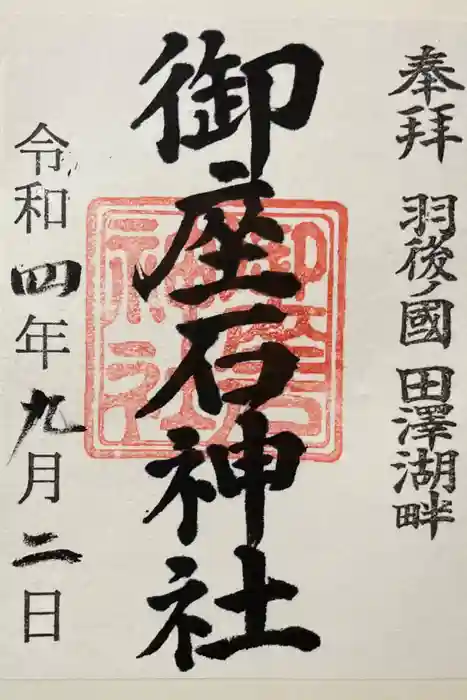 奉拝 羽後ノ國 田澤湖畔
御座石神社
令和四年九月二日
御座石神社